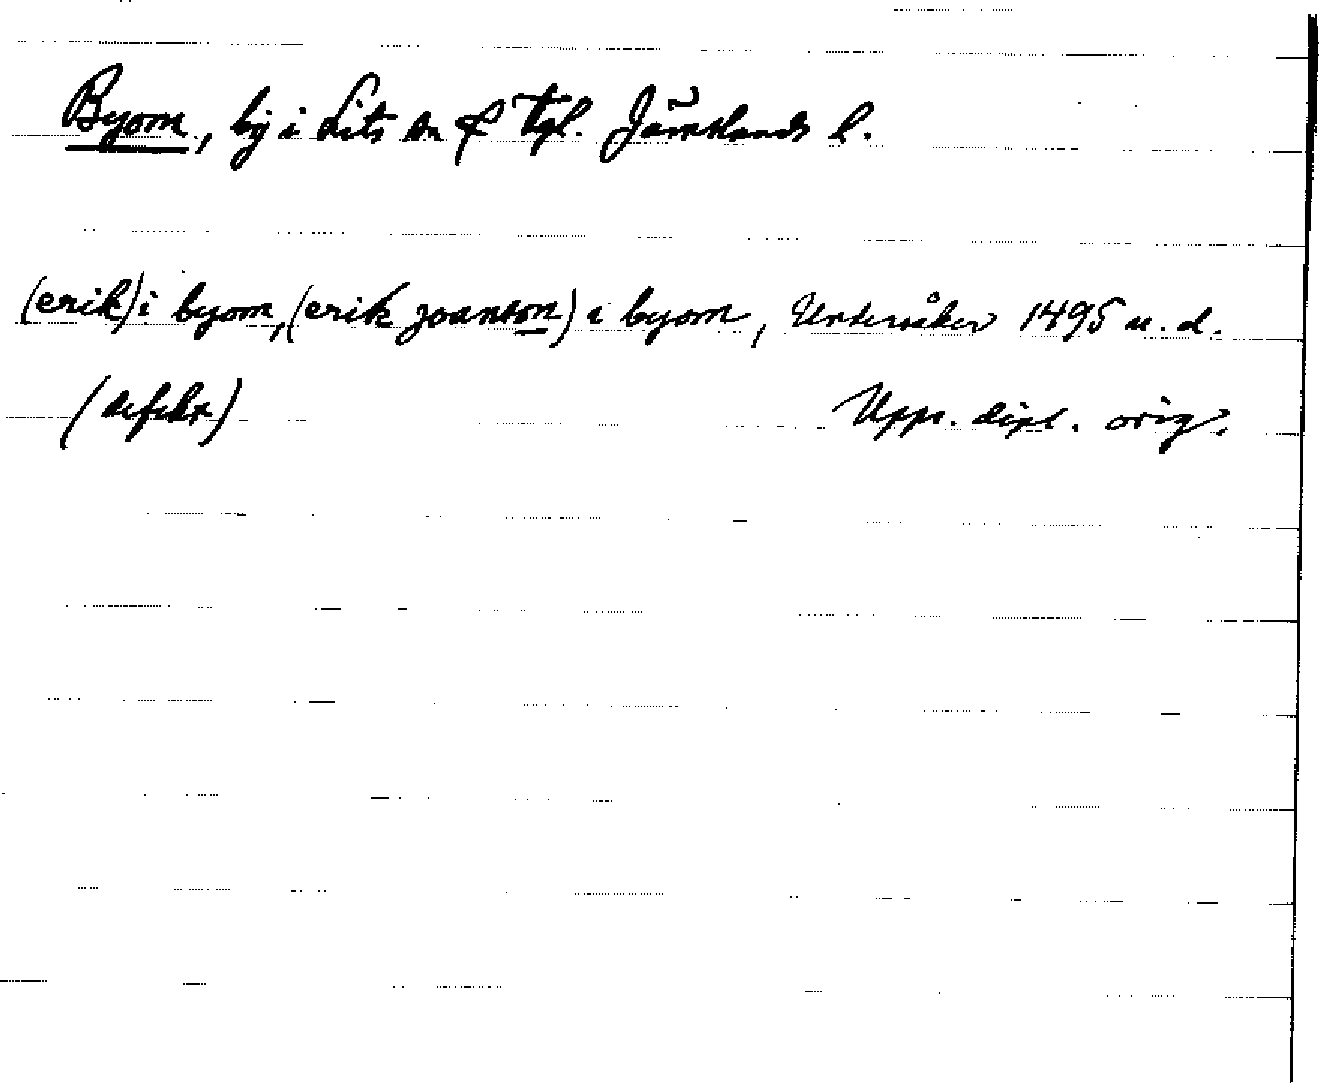 Byom, by i Lits sn o. tgl. Jämtlands l.
(erik) i byom, (erik joanson) i byom, Undersåker 1495 u. d.
(defekt) Upps. dipl. orig.